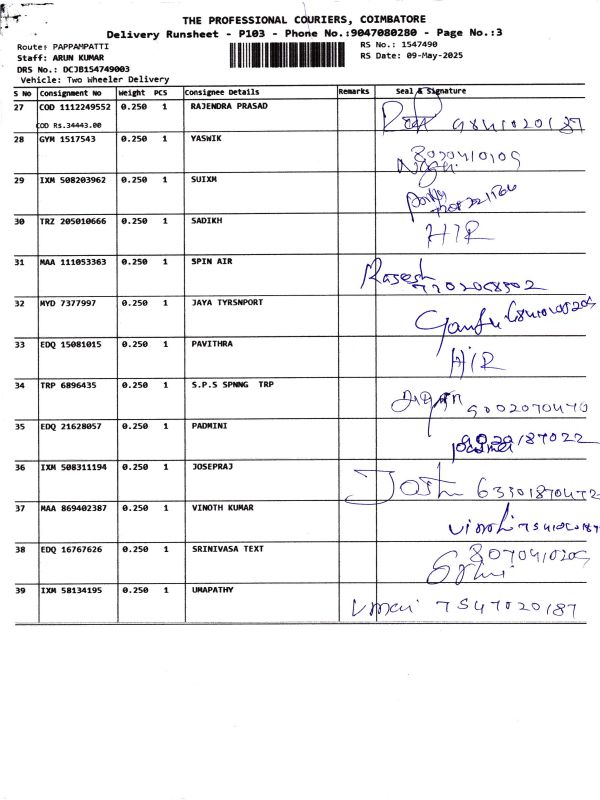 THE PROFESSIONAL COURIERS, COIMBATORE
Delivery Runsheet - P103 - Phone No.:9047080280 - Page No.:3
Route: PAPPAMPATTI
RS No.: 1547490
Staff: ARUN KUMAR
RS Date: 09-May-2025
DRS No.: DCJB154749003
Vehicle: Two Wheeler Delivery
S No Consignment No Weight PCS Consignee Details Remarks Seal & Signature
27 COD 1112249552 0.250 1 RAJENDRA PRASAD
COD Rs.34443.00
28 GYM 1517543 0.250 1 YASWIK
29 IXM 508203962 0.250 1 SUIXM
30 TRZ 205010666 0.250 1 SADIKH H/R
31 MAA 111053363 0.250 1 SPIN AIR Rajesh
32 MYD 7377997 0.250 1 JAYA TYRSNPORT
33 EDQ 15081015 0.250 1 PAVITHRA H/R
34 TRP 6896435 0.250 1 S.P.S SPNNG TRP 9002070470
35 EDQ 21628057 0.250 1 PADMINI
36 IXM 508311194 0.250 1 JOSEPRAJ
37 MAA 869402387 0.250 1 VINOTH KUMAR
38 EDQ 16767626 0.250 1 SRINIVASA TEXT
39 IXM 58134195 0.250 1 UMAPATHY 7547020187